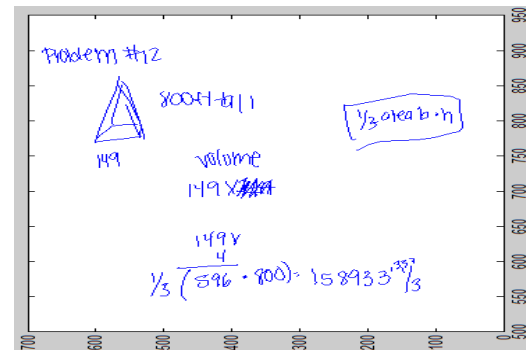 Problem #12
800ft tall
1/3 area b·h
149
volume
149 X
149 x
4
1/3 (596 · 800) = 158933 1/3
950
900
850
800
750
700
650
600
550
500
700
600
500
400
300
200
100
0